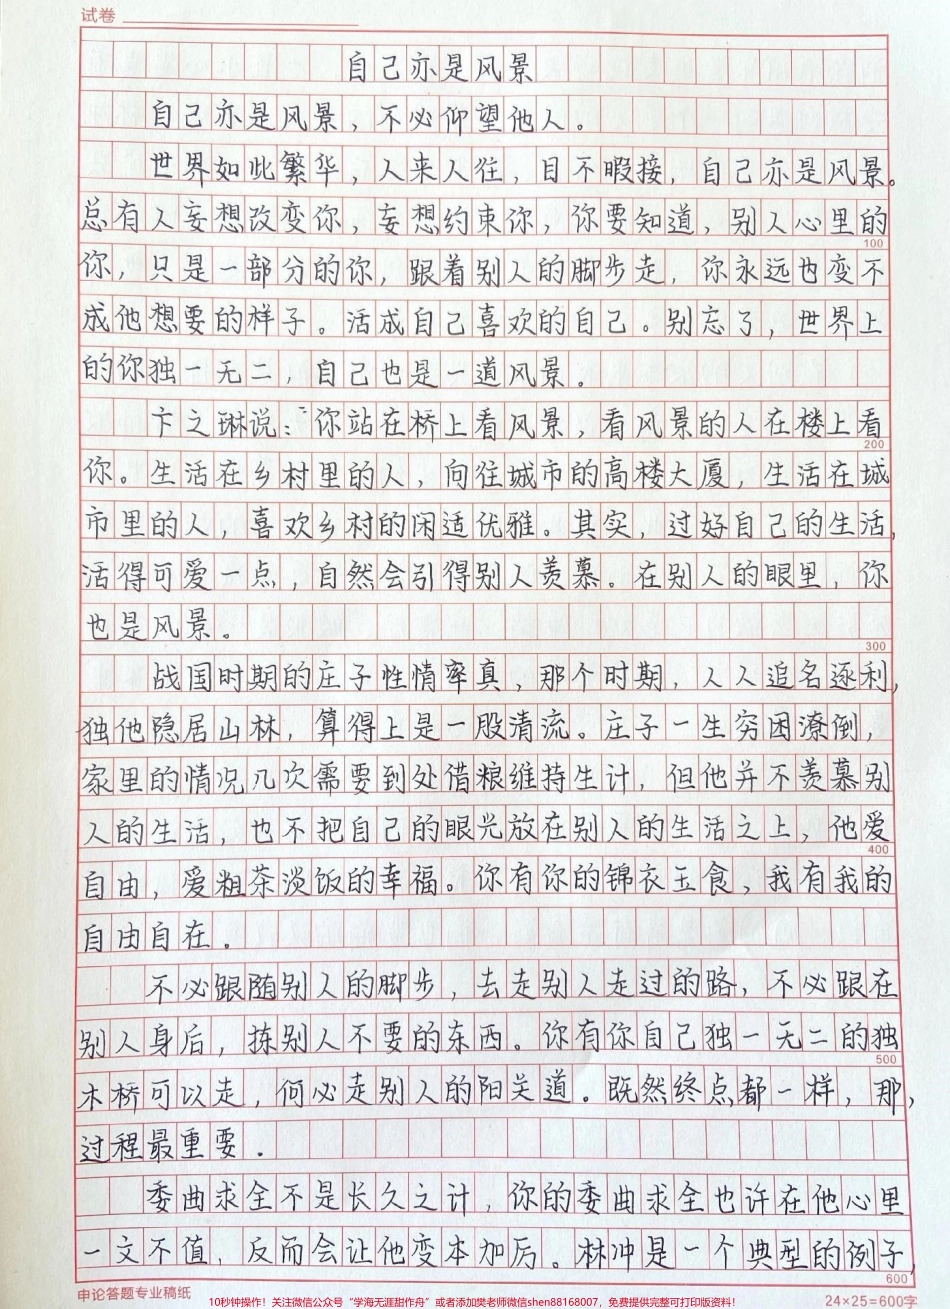 试卷
自己亦是风景
自己亦是风景，不必仰望他人。
世界如此繁华，人来人往，目不暇接，自己亦是风景。
总有人妄想改变你，妄想约束你，你要知道，别人心里的
100
你，只是一部分的你，跟着别人的脚步走，你永远也变不
成他想要的样子。活成自己喜欢的自己。别忘了，世界上
的你独一无二，自己也是一道风景。
卞之琳说：“你站在桥上看风景，看风景的人在楼上看
200
你。生活在乡村里的人，向往城市的高楼大厦，生活在城
市里的人，喜欢乡村的闲适优雅。其实，过好自己的生活，
活得可爱一点，自然会引得别人羡慕。在别人的眼里，你
也是风景。
300
战国时期的庄子性情率真，那个时期，人人追名逐利，
独他隐居山林，算得上是一股清流。庄子一生穷困潦倒，
家里的情况几次需要到处借粮维持生计，但他并不羡慕别
人的生活，也不把自己的眼光放在别人的生活之上，他爱
400
自由，爱粗茶淡饭的幸福。你有你的锦衣玉食，我有我的
自由自在。
不必跟随别人的脚步，去走别人走过的路，不必跟在
别人身后，拣别人不要的东西。你有你自己独一无二的独
500
木桥可以走，何必走别人的阳关道。既然终点都一样，那，
过程最重要．
委曲求全不是长久之计，你的委曲求全也许在他心里
一文不值，反而会让他变本加厉。林冲是一个典型的例子，
600
申论答题专业稿纸
24×25=600字
10秒钟操作！关注微信公众号“学海无涯甜作舟”或者添加樊老师微信shen88168007，免费提供完整可打印版资料！